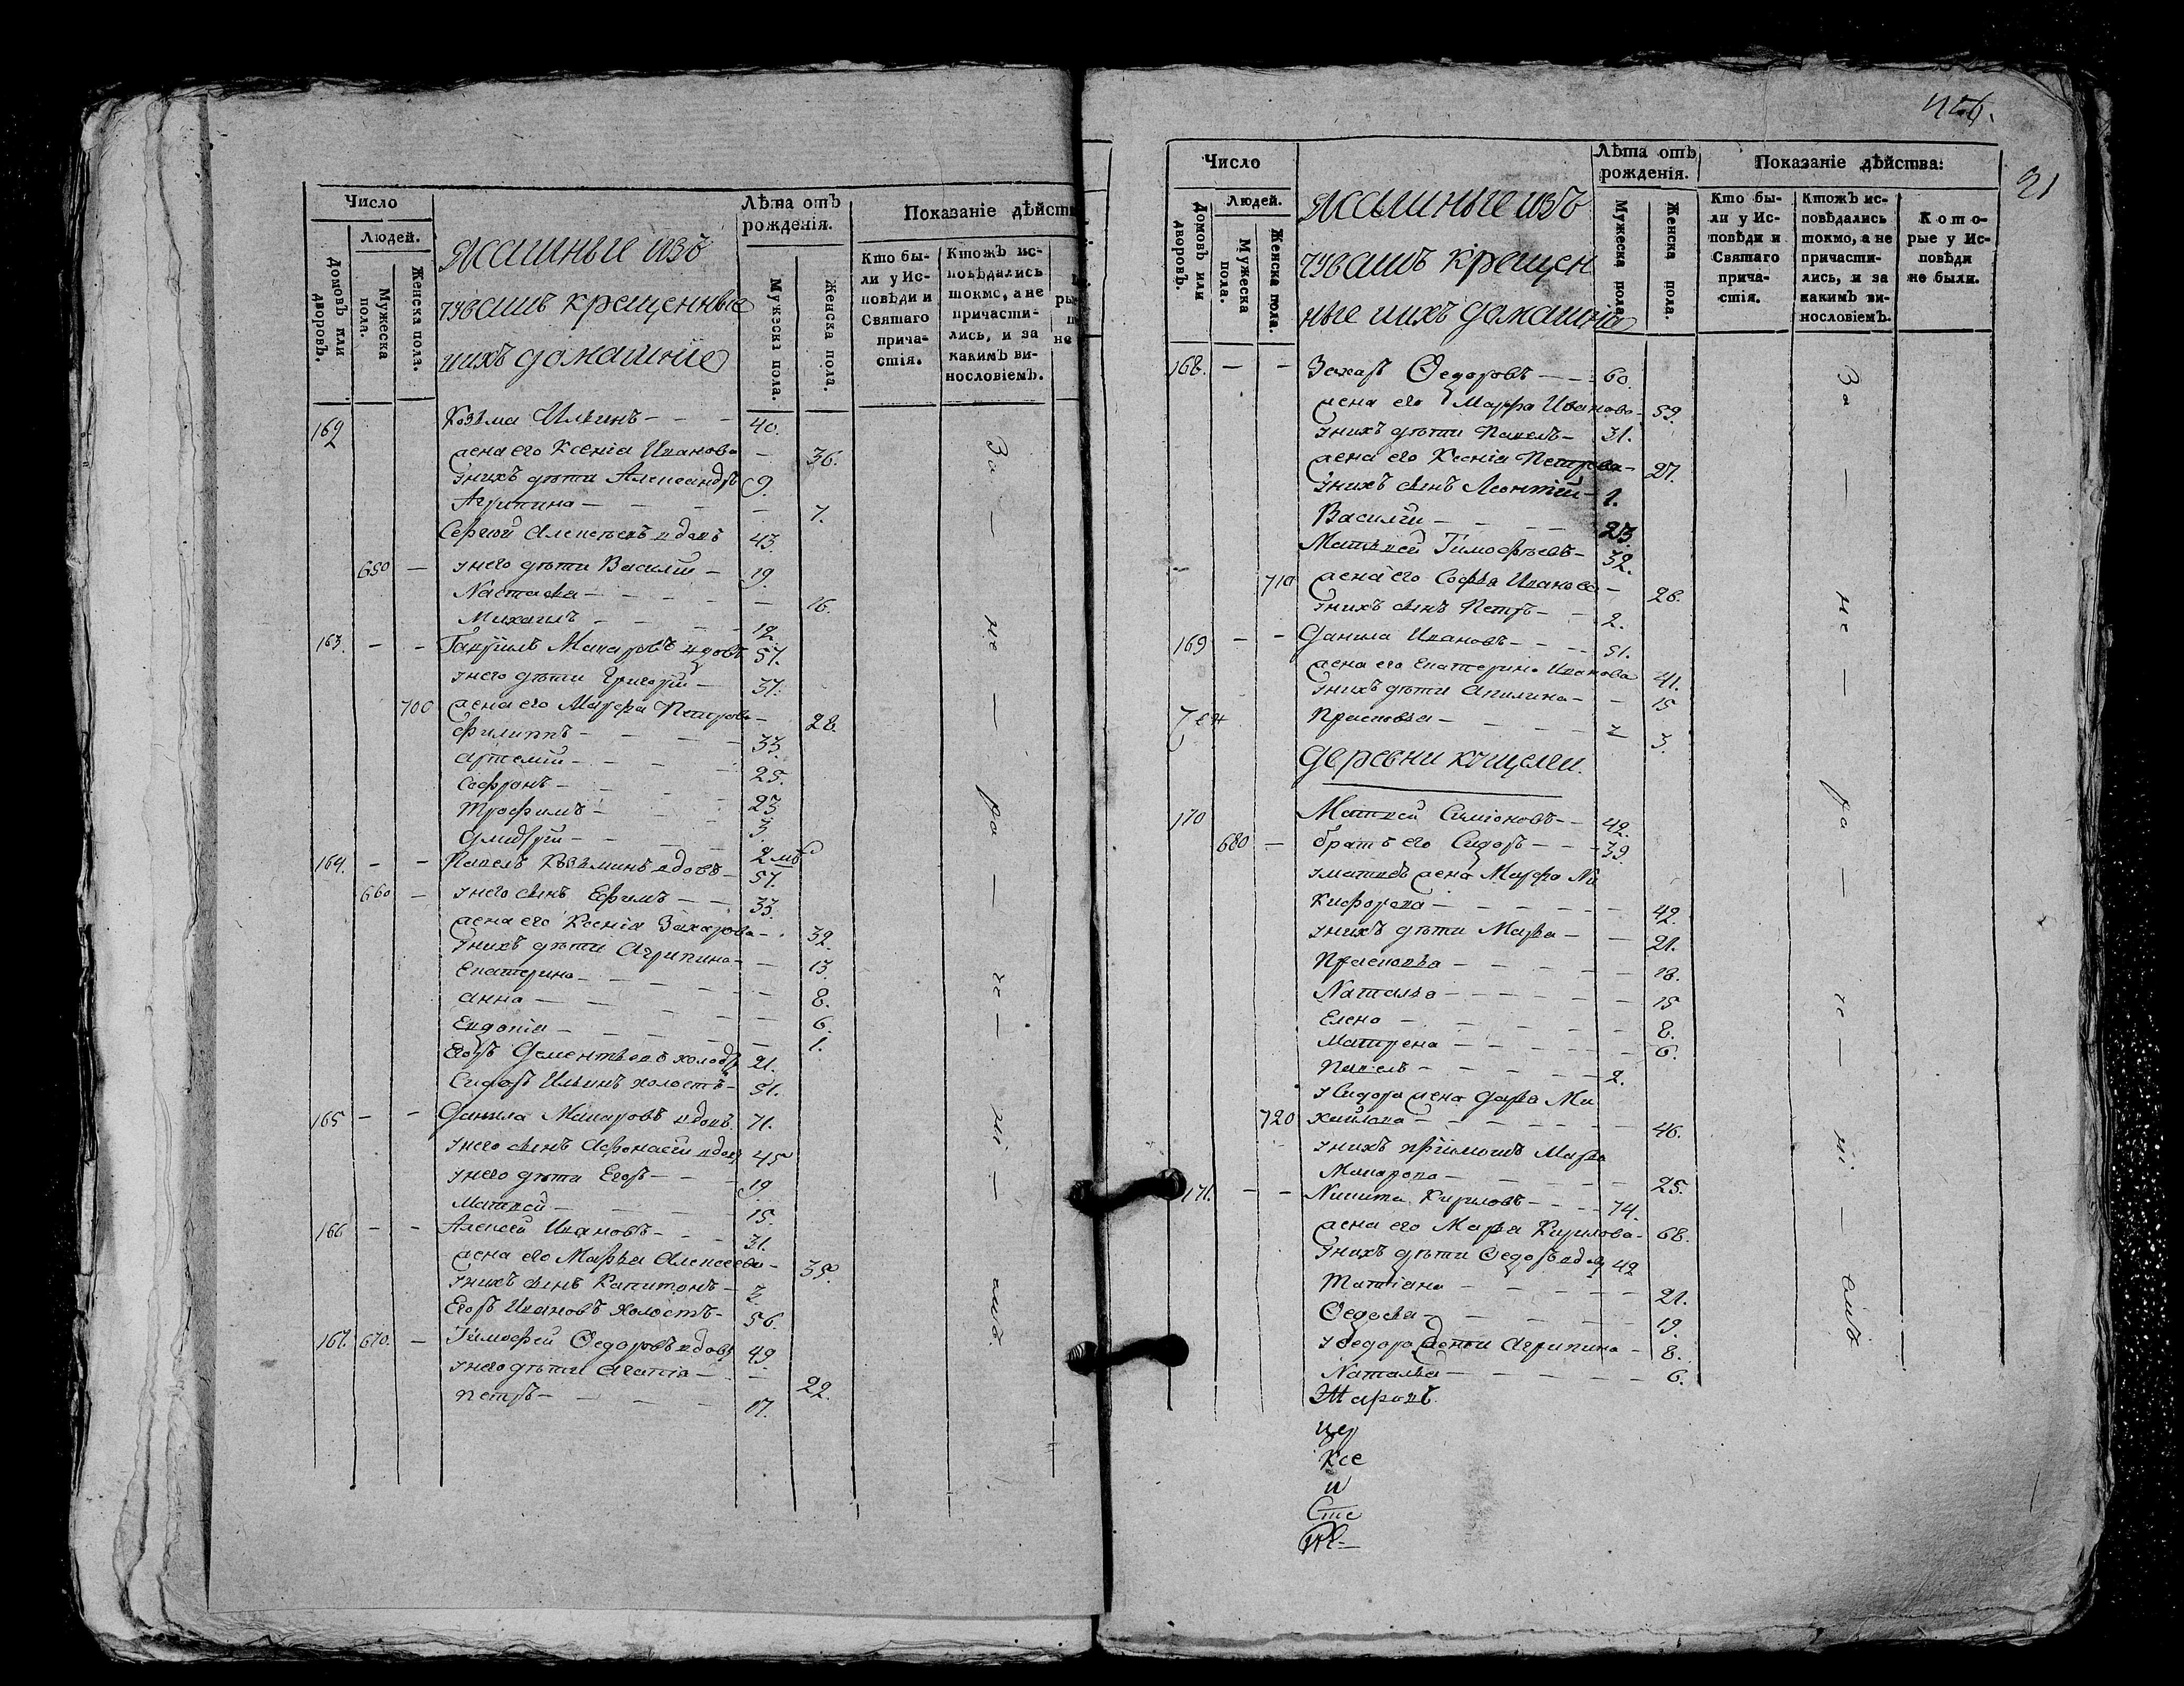 Число
Людей.
Домовъ или дворовъ.
Мужеска пола.
Женска пола.
Ясашные изъ
чувашъ крещенные
и ихъ домашніе
Лѣта отъ рожденія.
Мужеска пола.
Женска пола.
Показаніе дѣйст
Кто бы-
ли у Ис-
повѣди и
Святаго
прича-
стія.
Ктожъ ис-
повѣдались
токмо, а не
причасти-
лись, и за
какимъ ви-
нословіемъ.
162 Козьма Ильинъ - - - 40.
жена его Ксенія Иванова - 36.
у нихъ дѣти Александръ 9.
Агрипина - - - - - 7.
Сергей Алексѣевъ вдовъ 43.
650 - у него дѣти Василій - 19.
Настасья - - - - - 16.
Михаилъ - - - - 12
163. - - Гаврилъ Макаровъ вдовъ 57.
у него дѣти Григорій - 37.
700 жена его Марфа Петрова - 28.
Филиппъ - - - - 33.
Артемій - - - - 25.
Софронъ - - - 23
Трофимъ - - - 3.
Дмитрій - - - 2 мѣ
164. - - Павелъ Козьминъ вдовъ - 57.
660 - у него сынъ Ефимъ - - 33.
жена его Ксенія Захарова - 32.
у нихъ дѣти Агрипина - - 13.
Екатерина - - - - - 8.
Анна - - - - - 6.
Евдокія - - - - - 1.
Егоръ Дементьевъ холостъ 21.
Сидоръ Ильинъ холостъ - 51.
165 - - Данила Макаровъ вдовъ. 71.
у него сынъ Афонасій вдовъ 45
у него дѣти Егоръ - - - 19
Матвей - - - - 15.
166 - - Алексей Ивановъ - - - 31.
жена его Марья Алексеева - 35.
у нихъ сынъ Капитонъ - 2
Егоръ Ивановъ холостъ - 56.
167. 670. - Тимофей Федоровъ вдовъ 49
у него дѣти Агапія - - - 22.
Петръ - - - - 17.
За - не - ра - че - ні - емъ.
21
Число
Людей.
Домовъ или дворовъ.
Мужеска пола.
Женска пола.
Ясашные изъ
чувашъ крещен
ные и ихъ домашніе
Лѣта отъ рожденія.
Мужеска пола.
Женска пола.
Показаніе дѣйства:
Кто бы-
ли у Ис-
повѣди и
Святаго
прича-
стія.
Ктожъ ис-
повѣдались
токмо, а не
причасти-
лись, и за
какимъ ви-
нословіемъ.
Кото-
рые у Ис-
повѣди
не были.
168. - - Захаръ Федоровъ - - - 60.
жена его Марфа Иванова - 59.
у нихъ дѣти Павелъ - 31.
жена его Ксенія Петрова - 27.
у нихъ сынъ Леонтій - 1.
Василій - - - - 23
Матвей Тимофѣевъ - 32.
710 жена его Софья Иванова - 28.
у нихъ сынъ Петръ - - 2.
169 - - Данила Ивановъ - - - 51.
жена его Екатерина Иванова 41.
у нихъ дѣти Акилина - - 15
Прасковья - - - - - 3.
деревни Кищели.
170 Матвей Симіоновъ - - 42.
680 - братъ его Сидоръ - - - 39.
у Матвея жена Марфа Ни
кифорова - - - - - 42.
у нихъ дѣти Марья - - 21.
Прасковья - - - - - 18.
Наталья - - - - - 15
Елена - - - - - 8.
Матрена - - - - - 6.
Павелъ - - - - - 2.
у Сидора жена Дарья Ми
720 хайлова - - - - - 46.
у нихъ приімышъ Марья
Макарова - - - - - 25.
171. - - Никита Кириловъ - - - 74.
жена его Марья Кирилова - 68.
у нихъ дѣти Федоръ вдовъ 42
Татіана - - - - - 21.
Федосья - - - - - 19.
у Федора дочь Агрипина - 8.
Наталья - - - - - 6.
цер
Ксе
и
Сте
За - не - ра - че - ні - емъ